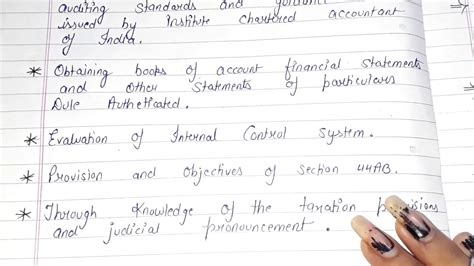 auditing standards and guidance
issued by Institute Chartered accountant
of India.
* Obtaining books of account financial statements
and other statements of particulars
Dule Autheticated.
* Evaluation of Internal Control system.
* Provision and Objectives of section 44AB.
* Through knowledge of the taxation provisions
and judicial pronouncement.